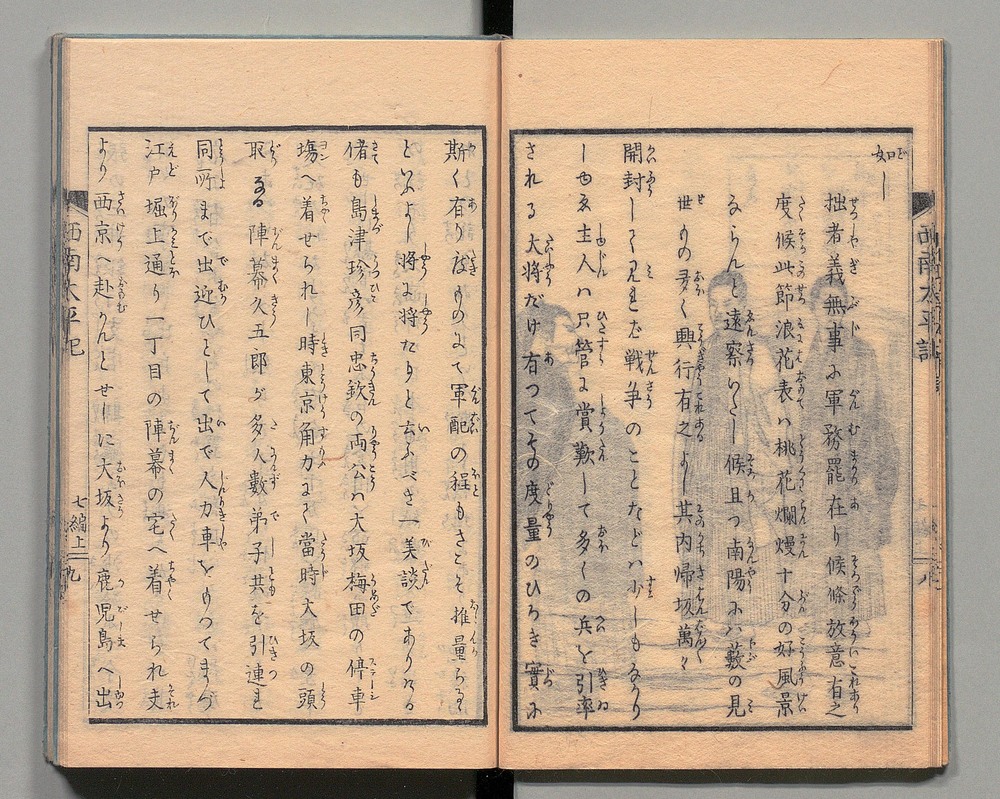 如し
拙者義無事に軍務罷在り候條放意有之
度候此節浪花表ハ桃花爛熳十分の好風景
ならんと遠察いたし候且つ南陽にハ藪の見
世もの多く興行有之よし其内帰坂萬々
開封して見れど戦争のことなどハ少しもなかり
しゆゑ主人ハ只管に賞歎して多くの兵を引率
される大将だけ有つてその度量のひろき實に
斯く有り度ものにて軍配の程もさこそ推量らるゝ
といふよし将に将たりと云ふべき一美談でありける
偖も島津珍彦同忠欽の両公ハ大坂梅田の停車
塲へ着せられし時東京角力にて當時大坂の頭
取なる陣幕久五郎が多人數弟子共を引連れ
同所まで出迎ひとして出で人力車をもつてまづ
江戸堀上通り一丁目の陣幕の宅へ着せられ夫
より西京へ赴かんとせしに大坂より鹿児島へ出
西南太平記
七編上
九
西南太平記
八